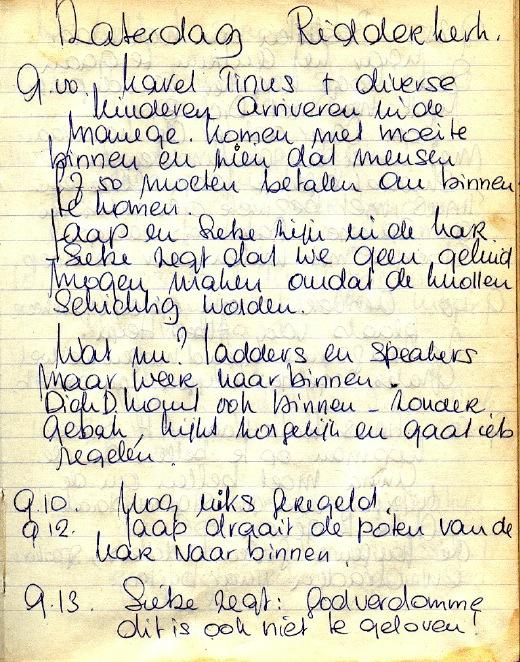 Zaterdag Ridderkerk.
9.00. Karel Tinus + diverse
kinderen arriveren in de
manege. Komen met moeite
binnen en zien dat mensen
f 7.50 moeten betalen om binnen
te komen.
Jaap en Sietze zijn in de kar.
Sietze zegt dat we geen geluid
mogen maken omdat de knollen
schichtig worden.
Wat nu? Ladders en speakers
maar weer naar binnen.
Dick D. komt ook binnen - zonder
gebak, kijkt zorgelijk en gaat iets
regelen.
9.10. Nog niks geregeld.
9.12. Jaap draait de poten van de
kar naar binnen.
9.13. Sietze zegt: Godverdomme
dit is ook niet te geloven!